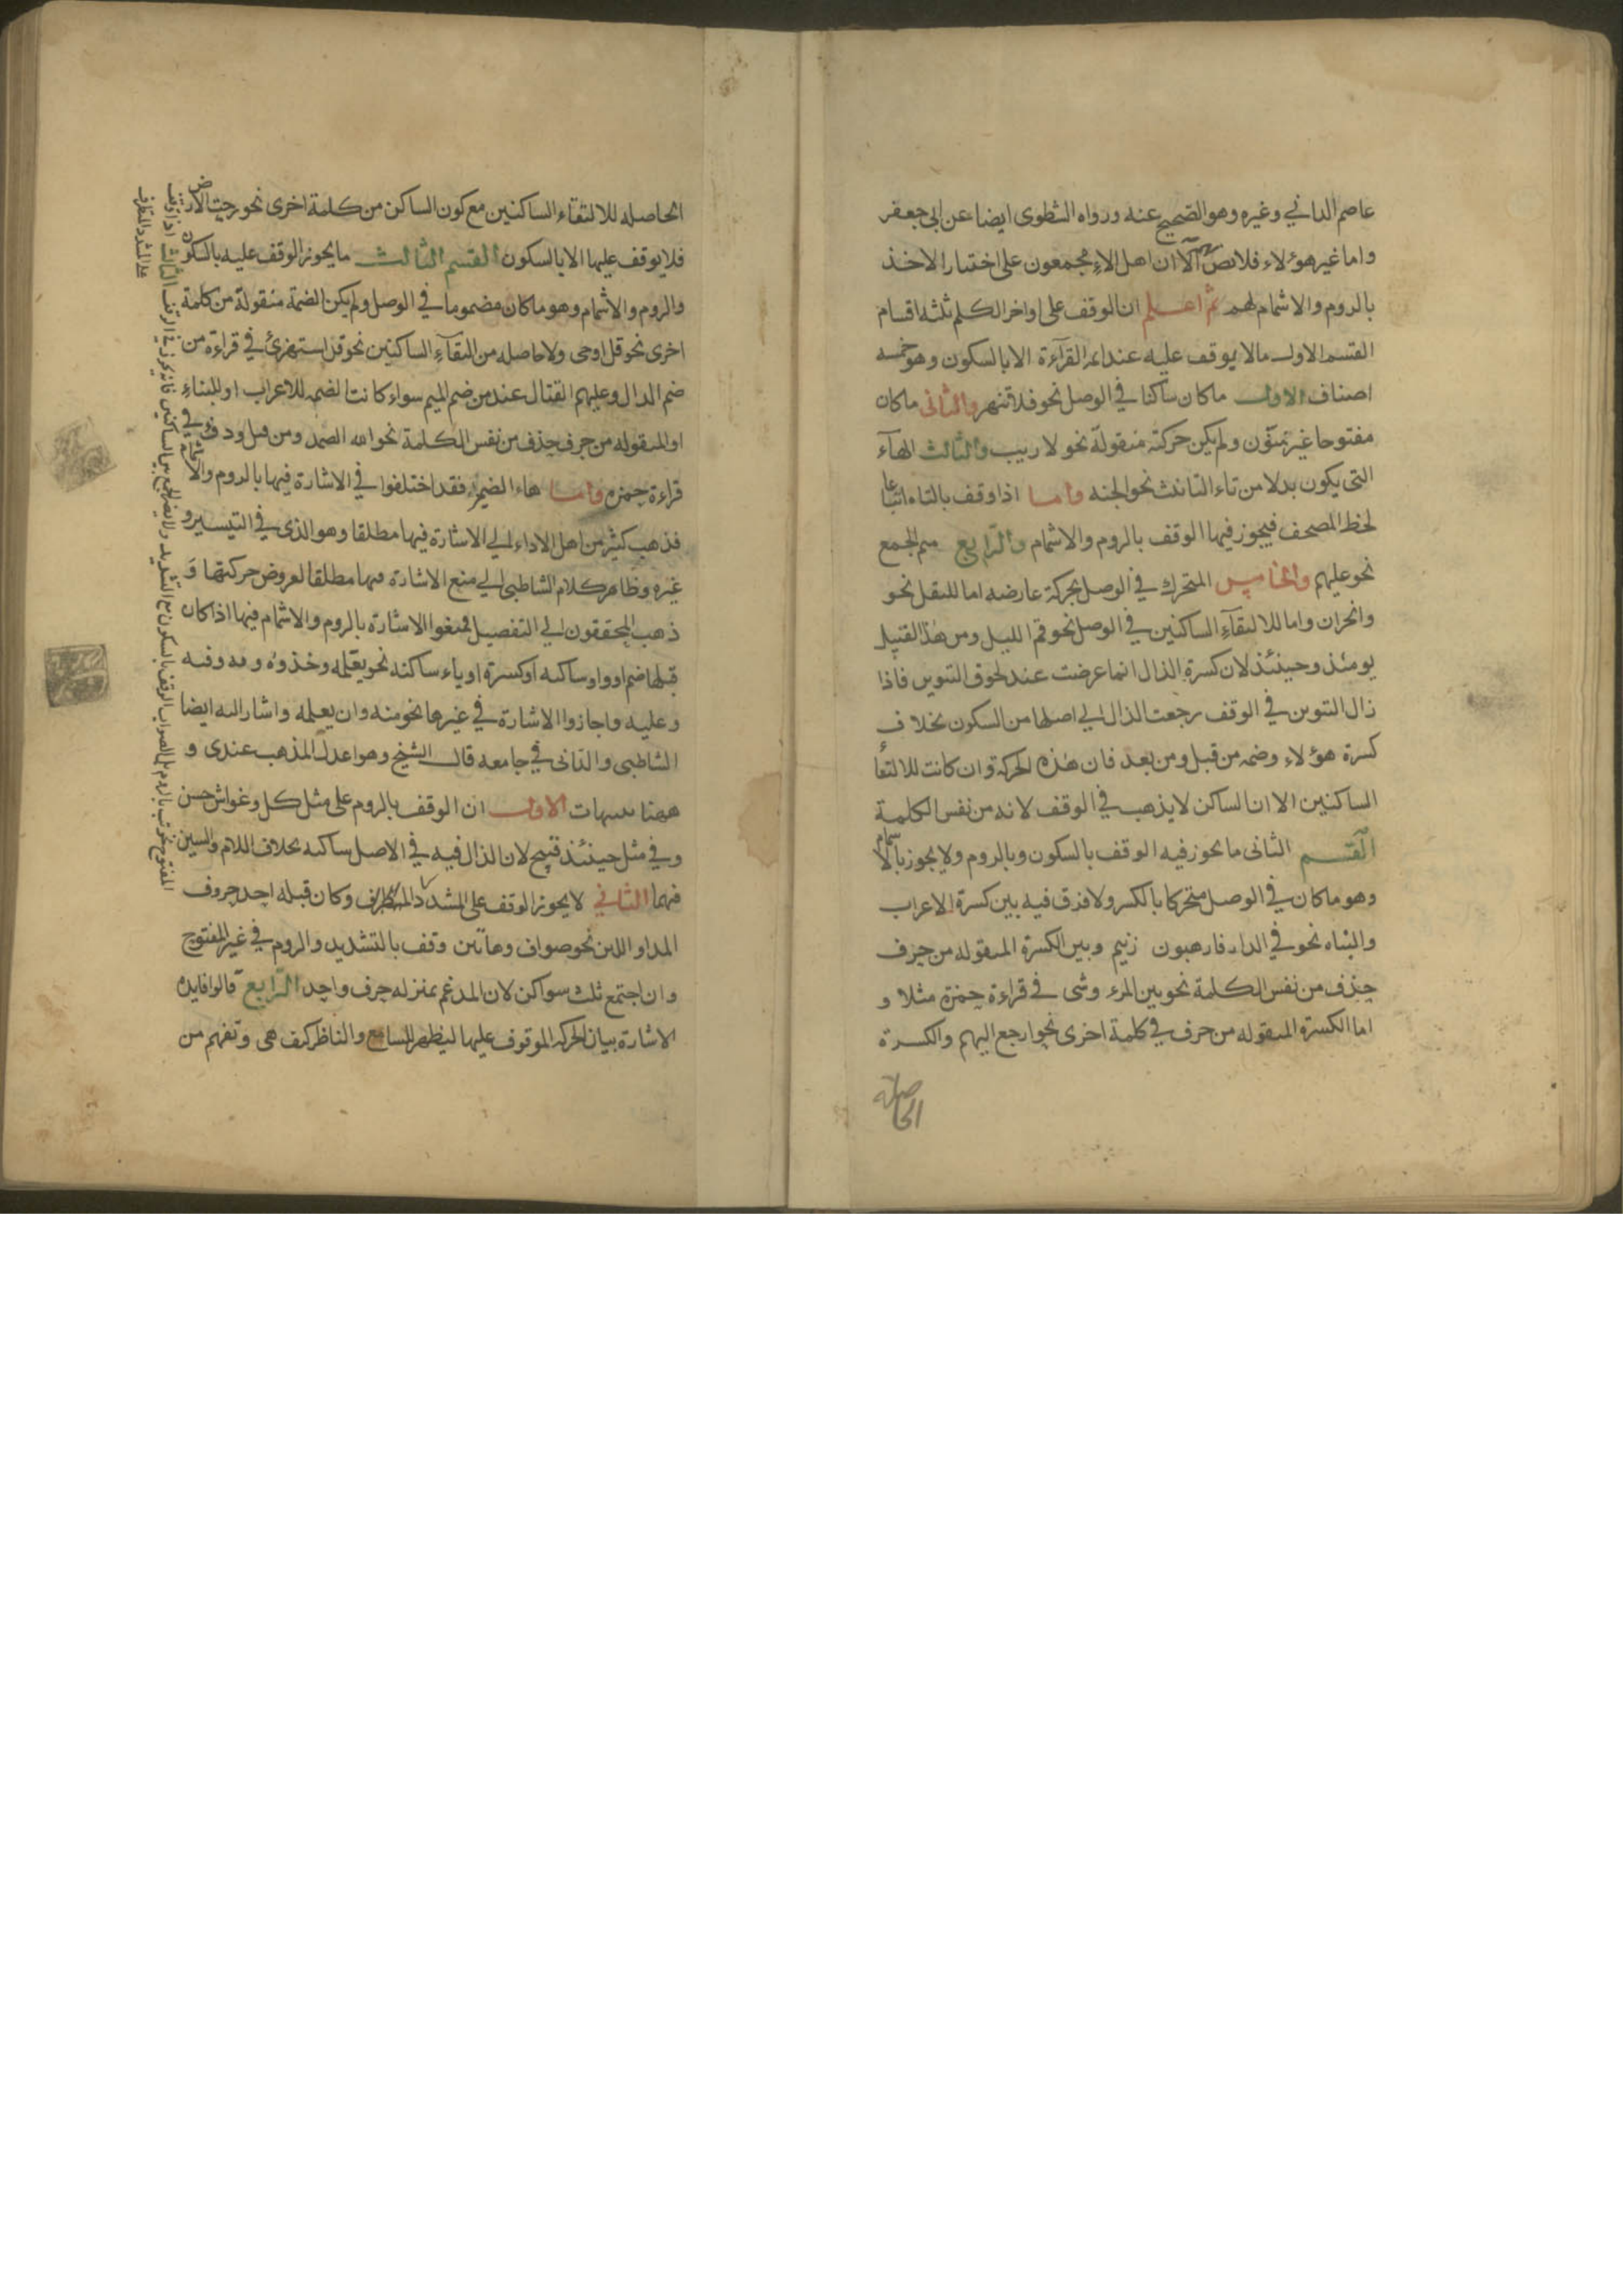 عاصم الداني وغيره وهو الصحيح عنه ورواه الشطوى ايضا عن ابي جعفر
واما غير هؤلاء فلا نص الا ان اهل الاداء مجمعون على اختيار الاخذ
بالروم والاشمام لهم ثم اعلم ان الوقف على اواخر الكلم ثلثة اقسام
القسم الاول مالا يوقف عليه عند ائمة القرآءة الا بالسكون وهو خمسه
اصناف الاول ماكان ساكنا في الوصل نحو فلا تنهر والثانى ماكان
مفتوحا غير منون ولم يكن حركته منقولة نحو لا ريب والثالث الهآء
التى يكون بدلا من تاء التانيث نحو الجنه واما اذا وقف بالتاء اتباعا
لخط المصحف فيجوز فيها الوقف بالروم والاشمام والرابع ميم الجمع
نحو عليهم والخامس المتحرك في الوصل بحركة عارضه اما للنقل نحو
وانحران واما لالتقآء الساكنين في الوصل نحو قم الليل ومن هذا القبيل
يومئذ وحينئذ لان كسرة الذال انما عرضت عند لحوق التنوين فاذا
زال التنوين في الوقف رجعت الذال الي اصلها من السكون بخلاف
كسرة هؤلاء وضمه من قبل ومن بعد فان هذه الحركة وان كانت لالتقا
الساكنين الا ان الساكن لا يذهب في الوقف لانه من نفس الكلمة
القسم الثانى ما يجوز فيه الوقف بالسكون وبالروم ولا يجوز بالاشمام
وهو ماكان في الوصل متحركا بالكسر ولا فرق فيه بين كسرة الاعراب
والبناء نحو في الدار فارهبون زنيم وبين الكسرة المنقوله من حرف
حذف من نفس الكلمة نحو بين المرء وشى في قراءة حمزة مثلا و
اما الكسرة المنقوله من حرف في كلمة اخرى نحو ارجع اليهم والكسرة
الحاصلة
الحاصله لالتقاء الساكنين مع كون الساكن من كلمة اخرى نحو رجت الارض
فلا يوقف عليها الا بالسكون القسم الثالث ما يجوز الوقف عليه بالسكون
والروم والاشمام وهو ماكان مضموما في الوصل ولم يكن الضمة منقولة من كلمة
اخرى نحو قل اوحى ولا حاصله من التقآء الساكنين نحو قد استهزئ في قراءة من
ضم الدال وعليهم القتال عند من ضم الميم سواء كانت الضمه للاعراب او للبناء
او المنقوله من حرف حذف من نفس الكلمة نحو الله الصمد ومن قبل ودفء في
قراءة حمزه واما هاء الضمير فقد اختلفوا في الاشارة فيها بالروم والاشمام
فذهب كثير من اهل الاداء الي الاشارة فيها مطلقا وهو الذى في التيسير و
غيره وظاهر كلام الشاطبى الي منع الاشارة فيها مطلقا لعروض حركتها و
ذهب المحققون الي التفصيل فمنعوا الاشارة بالروم والاشمام فيها اذا كان
قبلها ضم او واو ساكنه او كسرة او ياء ساكنه نحو يعلمه وخذوه و به وفيه
وعليه واجازوا الاشارة في غيرها نحو منه وان يعلمه واشار اليه ايضا
الشاطبى والدانى في جامعه قال الشيخ وهو اعدل المذهب عندى و
ههنا تنبيهات الاول ان الوقف بالروم على مثل كل وغواش حسن
وفي مثل حينئذ قبيح لان الذال فيه في الاصل ساكنه بخلاف اللام والشين
فيهما الثاني لا يجوز الوقف على المشدد المتطرف وكان قبله احد حروف
المد او اللين نحو صواف وهاتين وقف بالتشديد والروم في غير المفتوح
وان اجتمع ثلث سواكن لان المدغم بمنزله حرف واحد الرابع قالوا فايده
الاشارة بيان الحركة الموقوف عليها ليظهر للسامع والناظر كيف هى وتفهم من